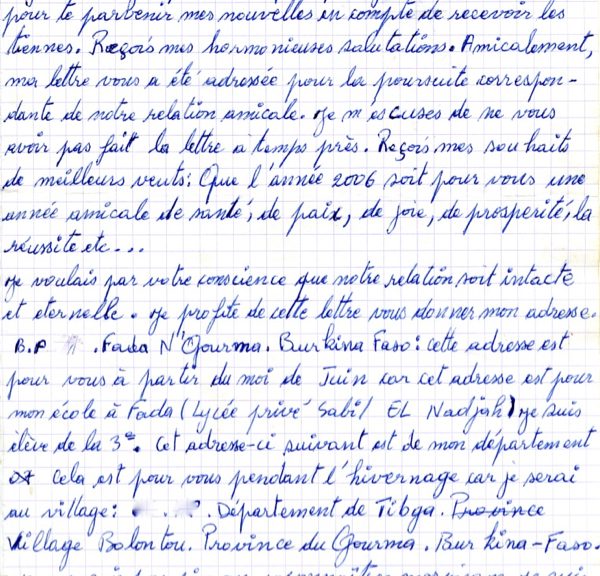 pour te parbenir mes nouvelles en compte de recevoir les
tiennes. Reçois mes harmonieuses salutations. Amicalement,
ma lettre vous a été adressée pour la poursuite correspon-
dante de notre relation amicale. Je m'escuses de ne vous
avoir pas fait la lettre à temps près. Reçois mes souhaits
de meilleurs veuts: Que l'année 2006 soit pour vous une
année amicale de santé, de paix, de joie, de prosperité, la
réussite etc...
Je voulais par votre conscience que notre relation soit intacte
et eternelle. Je profite de cette lettre vous donner mon adresse.
B.P . Fada N'Gourma. Burkina Faso: cette adresse est
pour vous à partir du moi de Juin car cet adresse est pour
mon école à Fada (Lycée privé Sabil EL Nadjah) je suis
élève de la 3e. Cet adresse-ci suivant est de mon département
cela est pour vous pendant l'hivernage car je serai
au village: . Département de Tibga. Province
Village Balontou. Province du Gourma. Burkina-Faso.